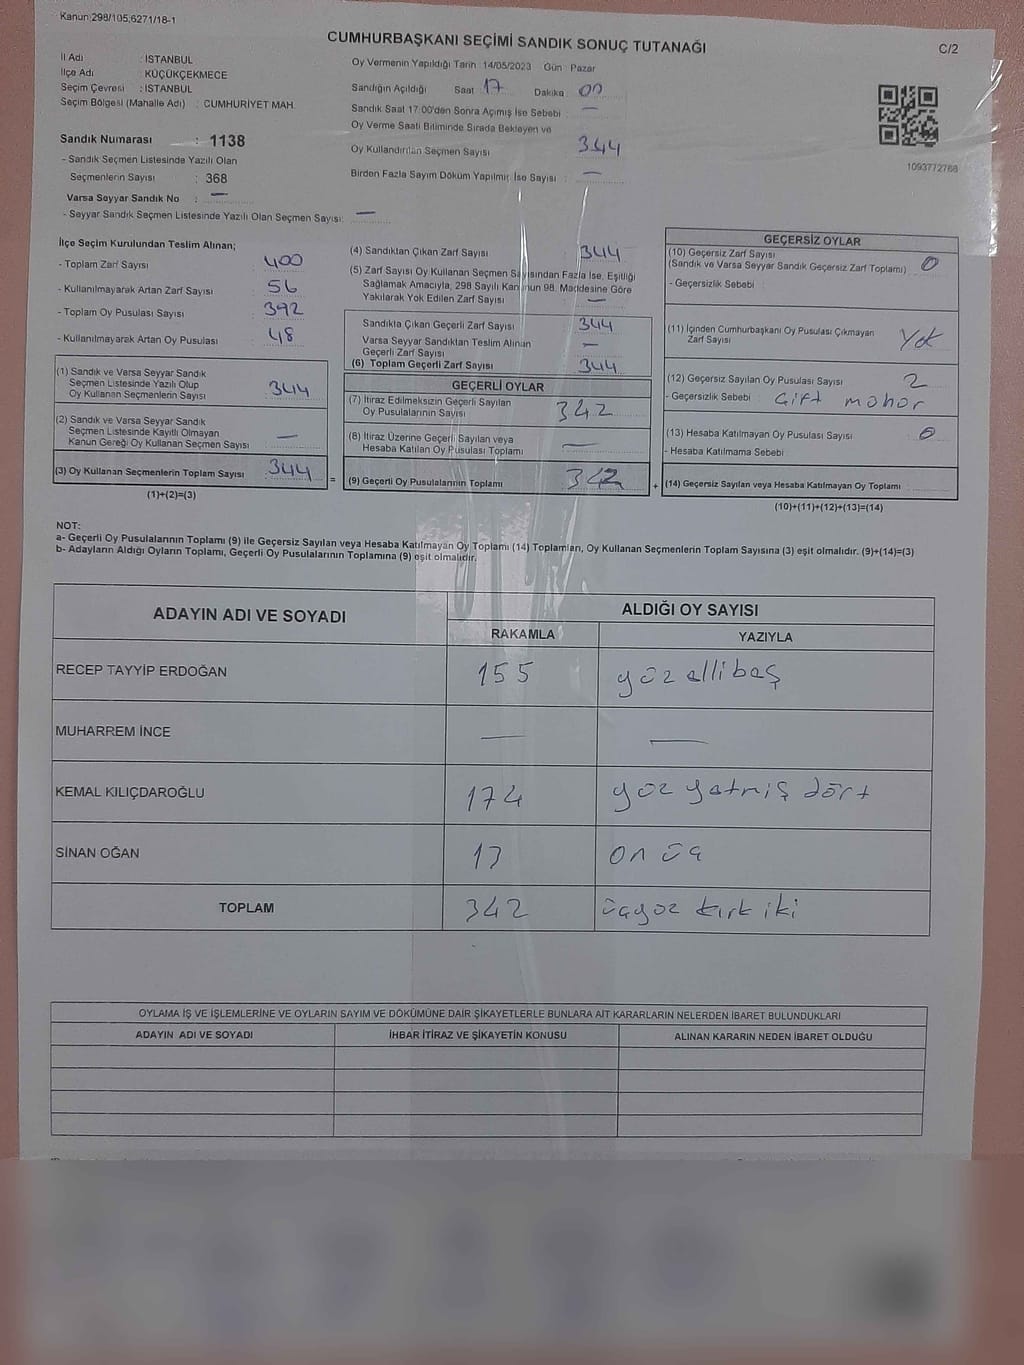 Kanun:298/105,6271/18-1
CUMHURBAŞKANI SEÇİMİ SANDIK SONUÇ TUTANAĞI
C/2
İl Adı : İSTANBUL
İlçe Adı : KÜÇÜKÇEKMECE
Seçim Çevresi : İSTANBUL
Seçim Bölgesi (Mahalle Adı) : CUMHURİYET MAH.
Sandık Numarası : 1138
- Sandık Seçmen Listesinde Yazılı Olan
Seçmenlerin Sayısı : 368
Varsa Seyyar Sandık No : —
- Seyyar Sandık Seçmen Listesinde Yazılı Olan Seçmen Sayısı: —
Oy Vermenin Yapıldığı Tarih : 14/05/2023 Gün : Pazar
Sandığın Açıldığı Saat : 17 Dakika : 00
Sandık Saat 17:00'den Sonra Açımış İse Sebebi : —
Oy Verme Saati Bitiminde Sırada Bekleyen ve
Oy Kullandırılan Seçmen Sayısı : 344
Birden Fazla Sayım Döküm Yapılmış İse Sayısı : —
1093772768
İlçe Seçim Kurulundan Teslim Alınan;
- Toplam Zarf Sayısı : 400
- Kullanılmayarak Artan Zarf Sayısı : 56
- Toplam Oy Pusulası Sayısı : 392
- Kullanılmayarak Artan Oy Pusulası : 48
(1) Sandık ve Varsa Seyyar Sandık
Seçmen Listesinde Yazılı Olup
Oy Kullanan Seçmenlerin Sayısı : 344
(2) Sandık ve Varsa Seyyar Sandık
Seçmen Listesinde Kayıtlı Olmayan
Kanun Gereği Oy Kullanan Seçmen Sayısı : —
(3) Oy Kullanan Seçmenlerin Toplam Sayısı : 344
(1)+(2)=(3)
=
(4) Sandıktan Çıkan Zarf Sayısı : 344
(5) Zarf Sayısı Oy Kullanan Seçmen Sayısından Fazla İse, Eşitliği
Sağlamak Amacıyla, 298 Sayılı Kanunun 98. Maddesine Göre
Yakılarak Yok Edilen Zarf Sayısı : —
Sandıkta Çıkan Geçerli Zarf Sayısı : 344
Varsa Seyyar Sandıktan Teslim Alınan
Geçerli Zarf Sayısı : —
(6) Toplam Geçerli Zarf Sayısı : 344
GEÇERLİ OYLAR
(7) İtiraz Edilmeksizin Geçerli Sayılan
Oy Pusulalarının Sayısı : 342
(8) İtiraz Üzerine Geçerli Sayılan veya
Hesaba Katılan Oy Pusulası Toplamı : —
(9) Geçerli Oy Pusulalarının Toplamı : 342
+
GEÇERSİZ OYLAR
(10) Geçersiz Zarf Sayısı
(Sandık ve Varsa Seyyar Sandık Geçersiz Zarf Toplamı) : 0
- Geçersizlik Sebebi :
(11) İçinden Cumhurbaşkanı Oy Pusulası Çıkmayan
Zarf Sayısı : Yok
(12) Geçersiz Sayılan Oy Pusulası Sayısı : 2
- Geçersizlik Sebebi : Çift mühür
(13) Hesaba Katılmayan Oy Pusulası Sayısı : 0
- Hesaba Katılmama Sebebi :
(14) Geçersiz Sayılan veya Hesaba Katılmayan Oy Toplamı :
(10)+(11)+(12)+(13)=(14)
NOT:
a- Geçerli Oy Pusulalarının Toplamı (9) ile Geçersiz Sayılan veya Hesaba Katılmayan Oy Toplamı (14) Toplamları, Oy Kullanan Seçmenlerin Toplam Sayısına (3) eşit olmalıdır. (9)+(14)=(3)
b- Adayların Aldığı Oyların Toplamı, Geçerli Oy Pusulalarının Toplamına (9) eşit olmalıdır.
ADAYIN ADI VE SOYADI
ALDIĞI OY SAYISI
RAKAMLA YAZIYLA
RECEP TAYYİP ERDOĞAN 155 yüz elli beş
MUHARREM İNCE — —
KEMAL KILIÇDAROĞLU 174 yüz yetmiş dört
SİNAN OĞAN 13 on üç
TOPLAM 342 üçyüz kırk iki
OYLAMA İŞ VE İŞLEMLERİNE VE OYLARIN SAYIM VE DÖKÜMÜNE DAİR ŞİKAYETLERLE BUNLARA AİT KARARLARIN NELERDEN İBARET BULUNDUKLARI
ADAYIN ADI VE SOYADI İHBAR İTİRAZ VE ŞİKAYETİN KONUSU ALINAN KARARIN NEDEN İBARET OLDUĞU